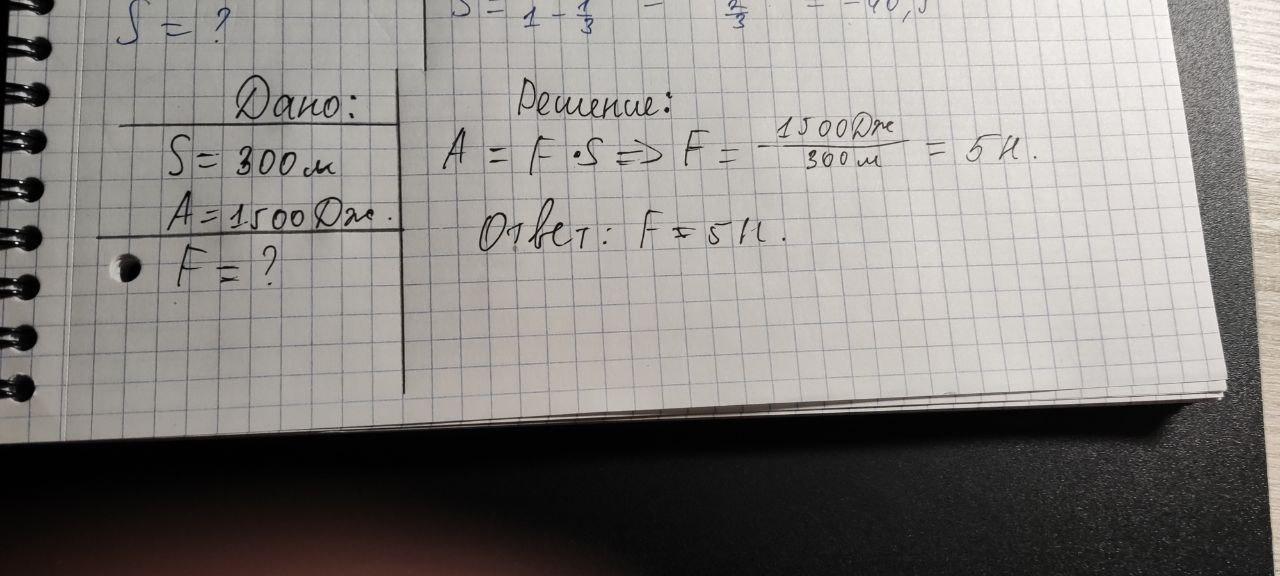 S = ?
S = 1 - 1/3 = 2/3 =
Дано:
S = 300 м
A = 1500 Дж.
F = ?
Решение:
A = F · S => F = 1500 Дж / 300 м = 5 Н.
Ответ: F = 5 Н.